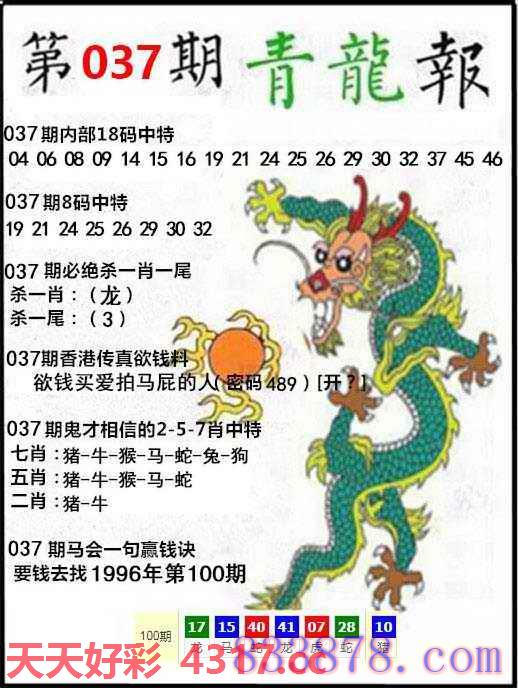 第037期青龍報
037期内部18码中特
04 06 08 09 14 15 16 19 21 24 25 26 29 30 32 37 45 46
037期8码中特
19 21 24 25 26 29 30 32
037 期必绝杀一肖一尾
杀一肖：（龙）
杀一尾：（3）
037期香港传真欲钱料
欲钱买爱拍马屁的人（密码489）[开？]
037期鬼才相信的2-5-7肖中特
七肖：猪-牛-猴-马-蛇-兔-狗
五肖：猪-牛-猴-马-蛇
二肖：猪-牛
037 期马会一句赢钱诀
要钱去找1996年第100期
100期 17 15 40 41 07 28 10
龙 马 蛇 龙 虎 蛇 猪
天天好彩 4317.cc